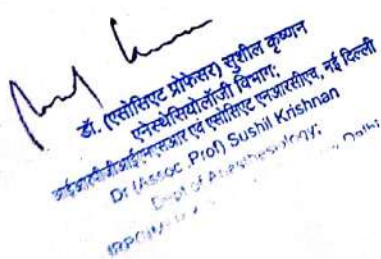 डॉ. (एसोसिएट प्रोफेसर) सुशील कृष्णन
एनेस्थेसियोलॉजी विभाग:
एवं एसोसिएट एनआरसीएच, नई दिल्ली
Dr (Assoc .Prof) Sushil Krishnan
Dept of Anesthesiology;